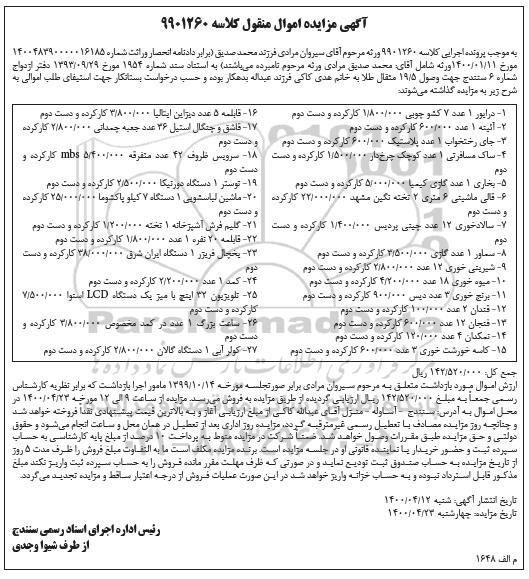 آگهی مزایده اموال منقول کلاسه ۹۹۰۱۲۶۰
به موجب پرونده اجرایی کلاسه ۹۹۰۱۲۶۰ ورثه مرحوم آقای سیروان مرادی فرزند محمد صدیق (برابر دادنامه انحصار وراثت شماره ۱۴۰۰۴۸۳۹۰۰۰۰۰۱۶۱۸۵
مورخ ۱۴۰۰/۰۱/۱۱ورثه شامل آقای: محمد صدیق مرادی ورثه مرحوم نامبرده می‌باشند) به استناد سند شماره ۱۹۵۴ مورخ ۱۳۹۳/۰۹/۲۹ دفتر ازدواج
شماره ۶ سنندج جهت وصول ۱۹/۵ مثقال طلا به خانم هدی کاکی فرزند عبداله بدهکار بوده و حسب درخواست بستانکار جهت استیفای طلب اموالی به
شرح زیر به مزایده گذاشته می‌شوند:
۱- دراور ۱ عدد ۷ کشو چوبی ۱/۸۰۰/۰۰۰ کارکرده و دست دوم
۲- آئینه ۱ عدد ۶۰۰/۰۰۰ کارکرده و دست دوم
۳- جای رختخواب ۱ عدد پلاستیک ۶۰۰/۰۰۰ کارکرده و دست دوم
۴- ساک مسافرتی ۱ عدد کوچک چرخ‌دار ۱/۵۰۰/۰۰۰ کارکرده و دست
دوم
۵- بخاری ۱ عدد گازی کیمیا ۵/۰۰۰/۰۰۰ کارکرده و دست دوم
۶- قالی ماشینی ۶ متری ۲ تخته نگین مشهد ۲۲/۰۰۰/۰۰۰ کارکرده
و دست دوم
۷- سالادخوری ۱۲ عدد چینی پردیس ۱/۴۰۰/۰۰۰ کارکرده و دست
دوم
۸- سماور ۱ عدد گازی ۳/۵۰۰/۰۰۰ کارکرده و دست دوم
۹- شیرینی خوری ۱۲ عدد ۲/۸۰۰/۰۰۰ کارکرده و دست دوم
۱۰- میوه خوری ۱۸ عدد ۴/۲۰۰/۰۰۰ کارکرده و دست دوم
۱۱- برنج خوری ۳ عدد دیس ۹۰۰/۰۰۰ کارکرده و دست دوم
۱۲- قندان ۲ عدد ۱۰۰/۰۰۰ کارکرده و دست دوم
۱۳- فنجان ۱۲ عدد ۶۰۰/۰۰۰ کارکرده و دست دوم
۱۴- نمکدان ۴ عدد ۱۲۰/۰۰۰ کارکرده و دست دوم
۱۵- کاسه خورشت خوری ۳ عدد ۶۰۰/۰۰۰ کارکرده و دست دوم
۱۶- قابلمه ۵ عدد دیزاین ایتالیا ۳/۸۰۰/۰۰۰ کارکرده و دست دوم
۱۷- قاشق و چنگال استیل ۳۶ عدد جعبه چمدانی ۲/۸۰۰/۰۰۰ کارکرده
و دست دوم
۱۸- سرویس ظروف ۴۲ عدد متفرقه mbs ۵/۴۰۰/۰۰۰ کارکرده و
دست دوم
۱۹- توستر ۱ دستگاه دورتیکا ۲/۵۰۰/۰۰۰ کارکرده و دست دوم
۲۰- ماشین لباسشویی ۱ دستگاه ۷ کیلو پاکشوما ۲۵/۰۰۰/۰۰۰ کارکرده
و دست دوم
۲۱- گلیم فرش آشپزخانه ۱ تخته ۱/۲۰۰/۰۰۰ کارکرده و دست دوم
۲۲- قابلمه ۲۰ نفره ۱ عدد ۱/۸۰۰/۰۰۰ کارکرده و دست دوم
۲۳- یخچال فریزر ۱ دستگاه ایران شرق ۳۸/۰۰۰/۰۰۰ کارکرده و دست
دوم
۲۴- کمد ۱ عدد ۲/۲۰۰/۰۰۰ کارکرده و دست دوم
۲۵- تلویزیون ۳۲ اینچ با میز یک دستگاه LCD اسنوا ۷/۵۰۰/۰۰۰
کارکرده و دست دوم
۲۶- ساعت بزرگ ۱ عدد در کمد مخصوص ۳/۸۰۰/۰۰۰ کارکرده و
دست دوم
۲۷- کولر آبی ۱ دستگاه گالان ۲/۸۰۰/۰۰۰ کارکرده و دست دوم
جمع کل: ۱۴۲/۵۲۰/۰۰۰ ریال
ارزش اموال مورد بازداشت متعلق به مرحوم سیروان مرادی برابر صورتجلسه مورخه ۱۳۹۹/۱۰/۱۴ مامور اجرا بازداشت که برابر نظریه کارشناس
رسمی جمعاً به مبلغ ۱۴۲/۵۲۰/۰۰۰ ریال ارزیابی گردیده از طریق مزایده به فروش می‌رسد. مزایده از ساعت ۹ الی ۱۲ مورخه ۱۴۰۰/۰۴/۲۳ در
محل اموال به آدرس: سنندج - آساوله - منزل آقای عبداله کاکی از مبلغ ارزیابی آغاز و به بالاترین قیمت پیشنهادی نقداً فروخته خواهد شد
و چنانچه روز مزایده مصادف با تعطیل رسمی غیرمترقبه گردد، مزایده روز اداری بعد از تعطیل در همان محل و ساعت انجام می‌شود و حقوق
دولتی و حق مزایده طبق مقررات وصول خواهد شد. ضمناً شرکت در مزایده منوط به پرداخت ۱۰ درصد از مبلغ پایه کارشناسی به حساب
سپرده ثبت و حضور خریدار یا نماینده قانونی او در جلسه مزایده است. برنده مزایده مکلف است ما به التفاوت مبلغ فروش را ظرف مدت ۵ روز
از تاریخ مزایده به حساب صندوق ثبت تودیع نماید و در صورتی که ظرف مهلت مقرر مانده فروش را به حساب سپرده ثبت واریز نکند مبلغ
مذکور قابل استرداد نبوده و به حساب خزانه واریز خواهد شد در این صورت عملیات فروش از درجه اعتبار ساقط و مزایده تجدید می‌گردد.
تاریخ انتشار آگهی: شنبه ۱۴۰۰/۰۴/۱۲
تاریخ مزایده: چهارشنبه ۱۴۰۰/۰۴/۲۳
رئیس اداره اجرای اسناد رسمی سنندج
از طرف شیوا وجدی
م الف ۱۶۴۸